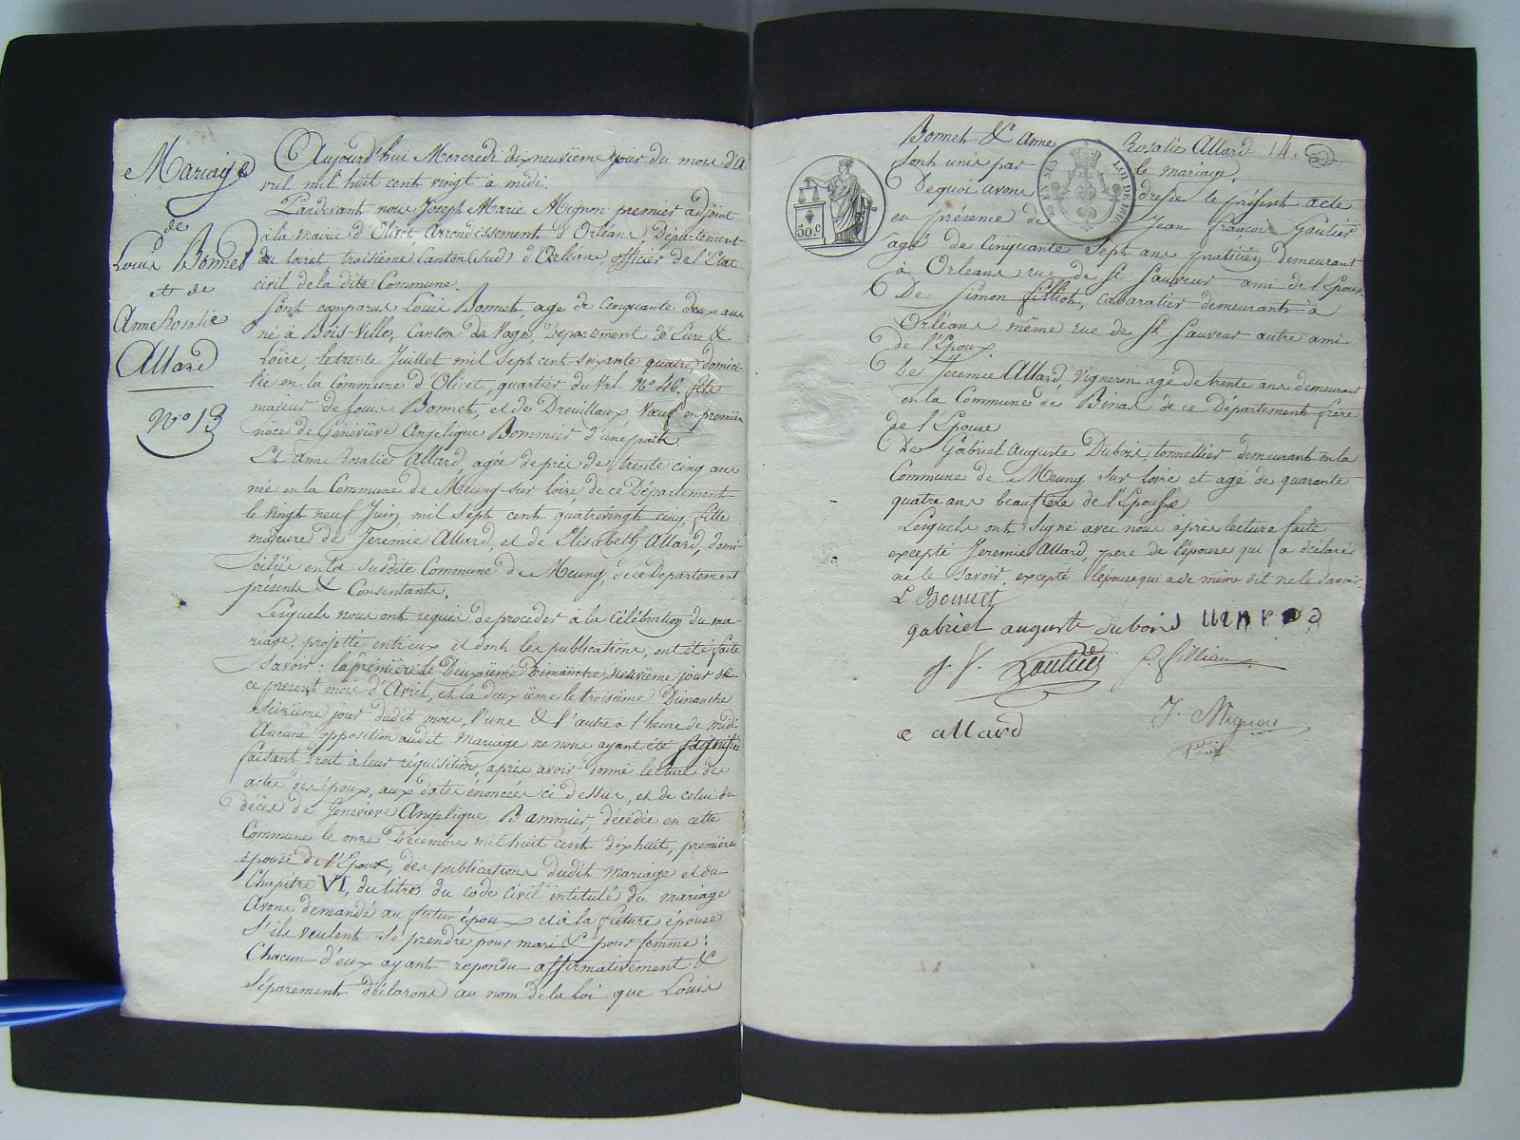 Mariage
de
Louis Bonnet
et de
Anne Rosalie
Allard
N.º 13
Aujourd'hui Mercredi dix neuvième jour du mois d'A
vril mil huit cent vingt à midi.
Pardevant nous Joseph Marie Mignon premier adjoint
à la Mairie d'Olivet, Arrondissement d'Orléans, Département
du loiret troisième Canton (Sud) d'Orléans, officier de l'Etat
civil de la dite Commune.
Sont comparus Louis Bonnet, agé de Cinquante deux ans
né à Bois-Ville, Canton de Vage, Département d'Eure &
Loire, le trente Juillet mil Sept cent soixante quatre, domici-
lié en la Commune d'Olivet, quartier du Val N.º 46. fils
majeur de Bonnet, et de Drouillaux Veuf en première
nôce de Génevieve Angelique Bommier d'une part.
Et Anne Rosalie Allard, agée de près de trente cinq ans
née en la Commune de Meung sur loire de ce Département
le vingt neuf Juin mil Sept cent quatrevingt cinq, fille
majeure de Jeremie Allard, et de Elisabeth Allard, domi-
ciliée en la Susdite Commune de Meung, de ce Département
présente & Consentante.
Lesquels nous ont requis de proceder à la Célébration du ma-
riage projetté entr'eux et dont les publications ont été faite
Savoir: la première le Deuxième Dimanche neuvième jour de
ce present mois d'Avril, et la deuxième le troisième Dimanche
Seizième jour dudit mois, l'une & l'autre à l'heure de midi
Aucune opposition audit Mariage ne nous ayant été signifiée
faisant droit à leur réquisition, après avoir donné lecture des
actes des époux, aux dates énoncées ci dessus, et de celui du
décès de Genevieve Angelique Bammier, décédée en cette
Commune le onze Décembre mil huit cent dix huit, première
épouse de l'Epoux, des publications dudit Mariage et du
Chapitre VI, du titre du code Civil intitulé du mariage
Avons demandé au futur époux et à la future épouse
S'ils veulent se prendre pour mari & pour femme:
Chacun d'eux ayant repondu affirmativement &
Séparement déclarons au nom de la loi que Louis
Bonnet & Anne Rosalie Allard 14.
sont unis par le mariage.
De quoi avons dressé le présent acte
en présence de Jean François Gaulier
agé de Cinquante Sept ans praticien demeurant
à Orléans rue de St Sauveur ami de l'Epoux
De Simon filliot, cabaratier demeurant à
Orléans même rue de St Sauveur autre ami
de l'Epoux.
De Jeremie Allard, Vigneron agé de trente ans demeurant
en la Commune de Binas de ce Département frère
de l'Epouse
De Gabriel Auguste Dubois tonnellier demeurant en la
Commune de Meung sur Loire et agé de quarante
quatre ans beaufrère de l'Epouse.
Lesquels ont Signé avec nous après lecture faite
excepté Jeremie Allard, pere de l'épouse qui a déclaré
ne le Savoir. excepté l'épouse qui a de même dit ne le Savoir.
30.C
L Bonnet
gabriel auguste dubois
J. f. Gaulier
S filliau
e allard
J. Mignon